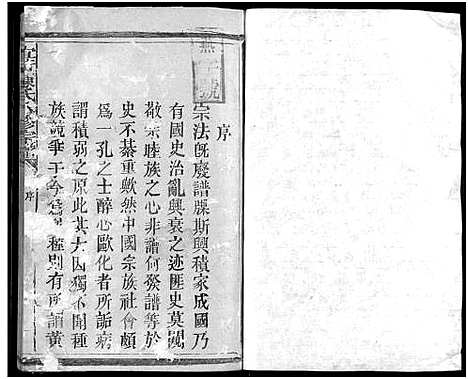 序
宗法既廢譜牒斯興積家成國乃
有國史治亂興衰之迹匪史莫闢
敬宗睦族之心非譜何發譜等於
史不綦重歟然中國宗族社會頗
為一孔之士醉心歐化者所詬病
謂積弱之原此其大因獨不聞種
族競爭于今為烈種則有所謂黃
序